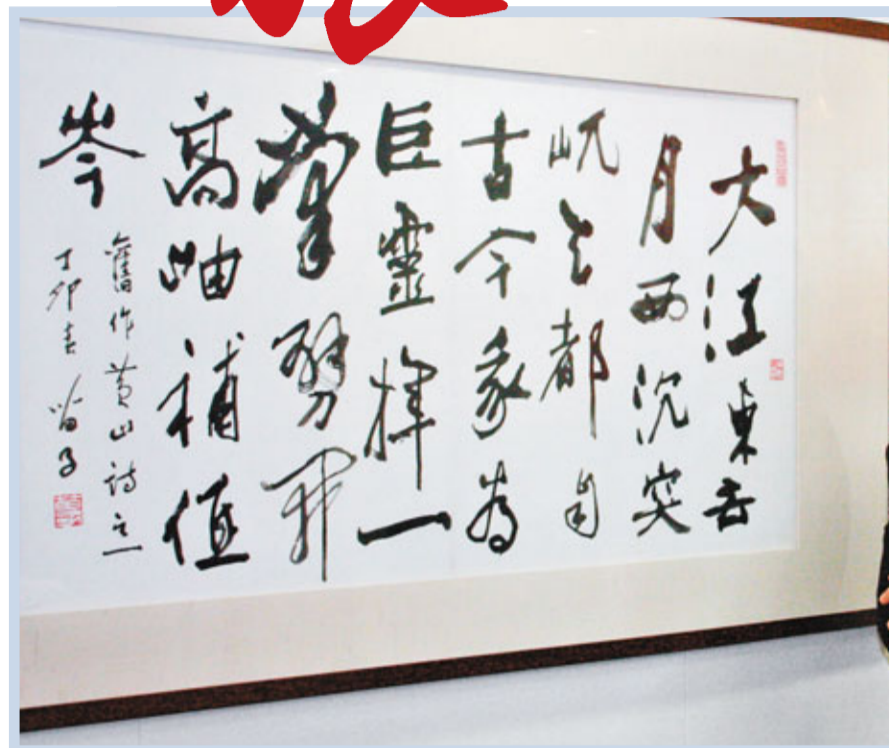 大江東去
月西沉突
屼天都自
古今我為
巨靈揮一
掌劈開
高岫補低
岑
舊作黃山詩之一
丁卯春 苗子